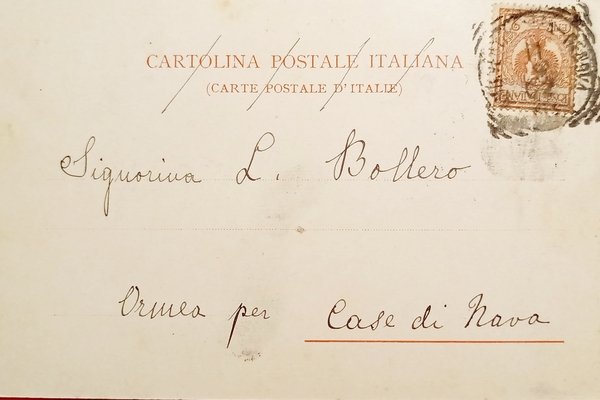 CARTOLINA POSTALE ITALIANA
(CARTE POSTALE D'ITALIE)
Signorina L. Bollero
Ormea per Case di Nava